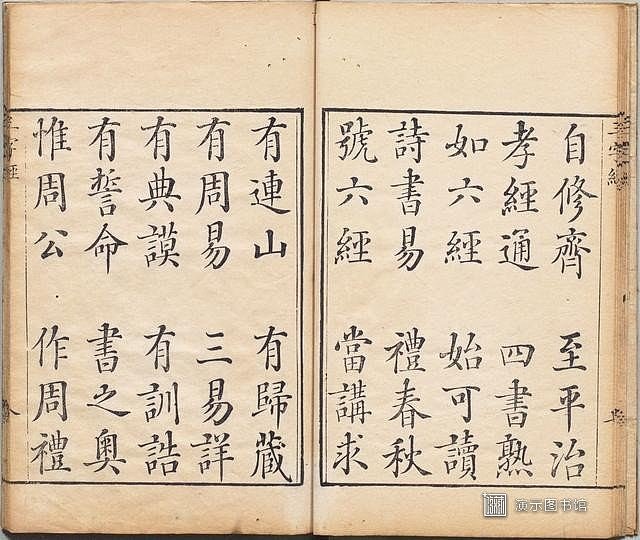 自修齊 至平治
孝經通 四書熟
如六經 始可讀
詩書易 禮春秋
號六經 當講求
有連山 有歸藏
有周易 三易詳
有典謨 有訓誥
有誓命 書之奧
惟周公 作周禮
三字經
三字經
演示图书馆